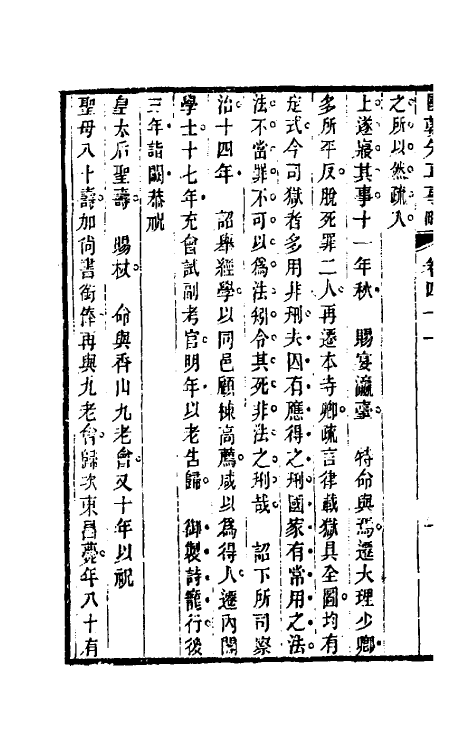 國朝先正事略 卷四十一
之所以然疏入
上遂寢其事十一年秋 賜宴瀛臺 特命與焉遷大理少卿
多所平反脫死罪二人再遷本寺卿疏言律載獄具全圖均有
定式今司獄者多用非刑夫囚有應得之刑國家有常用之法
法不當罪不可以為法矧令其死非法之刑哉 詔下所司察
治十四年 詔舉經學以同邑顧棟高薦咸以為得人遷內閣
學士十七年充會試副考官明年以老告歸 御製詩寵行後
三年詣闕恭祝
皇太后聖壽 賜杖 命與香山九老會又十年以祝
聖母八十壽加尚書銜俸再與九老會歸次東昌薨年八十有